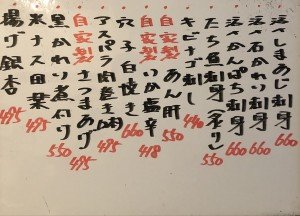 活しまあじ刺身 660
活石かれい刺身 660
活かんぱち刺身 660
たち魚刺身(炙り) 550
キビナゴ刺し 440
自家製 あん肝 550
自家製 いか塩辛 418
穴子白焼き 660
アスパラ 495
自家製 さつまあげ 495
黒かれい煮付け 550
水ナス田楽 495
揚げ銀杏 495